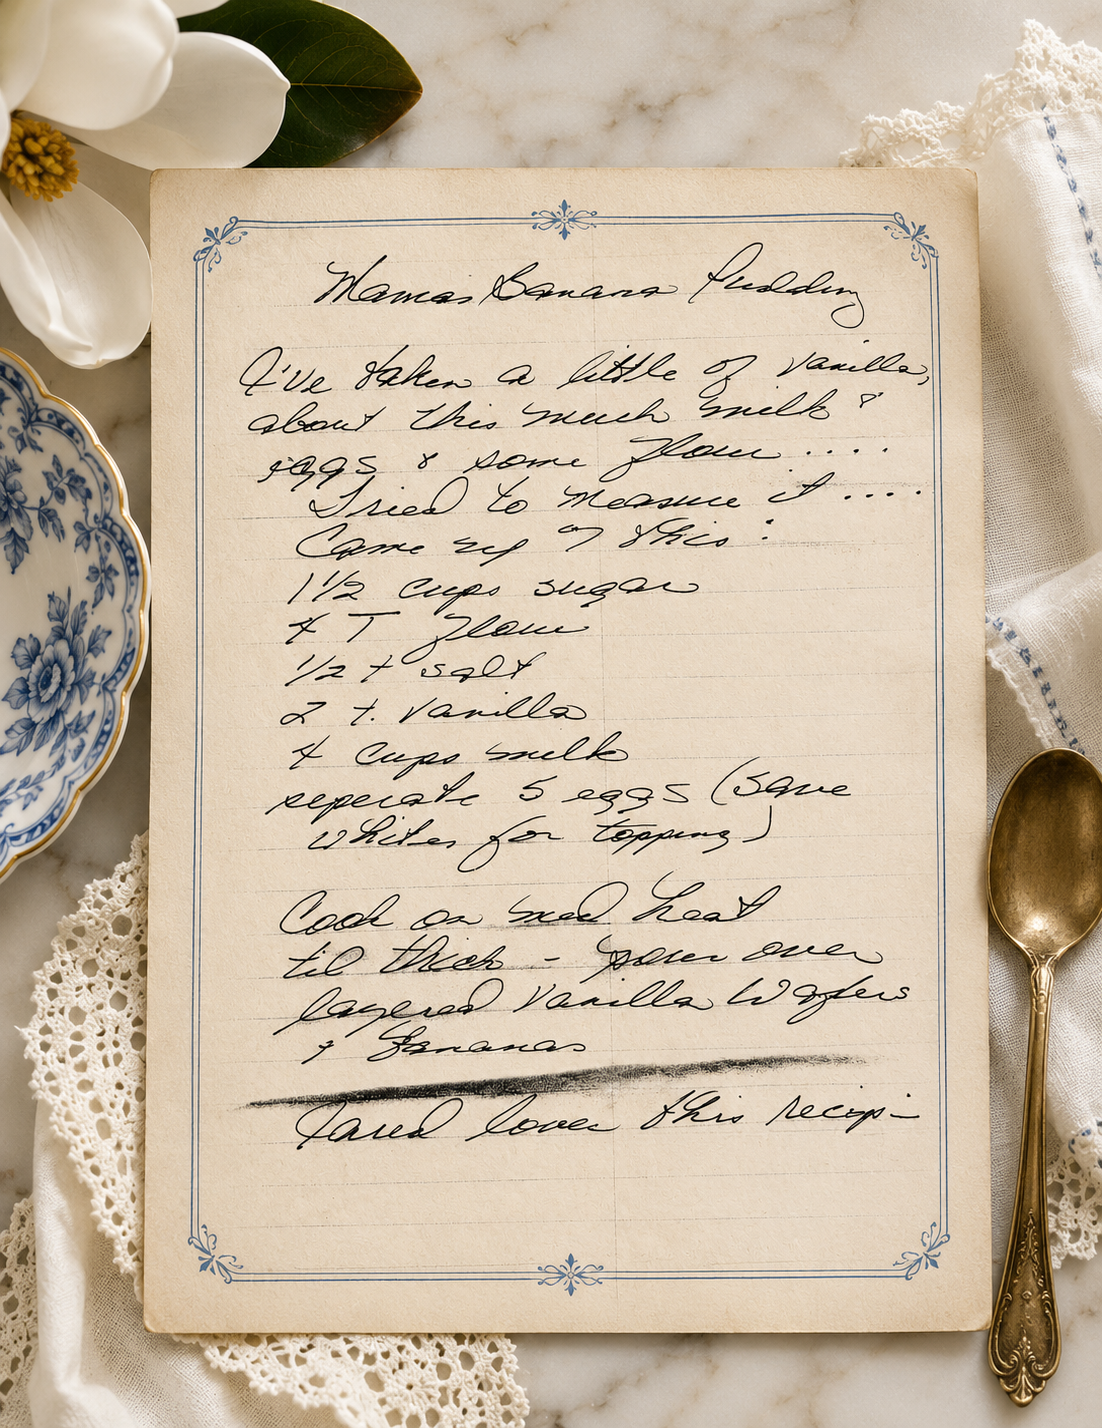 Mama's Banana Pudding
I've taken a little of vanilla,
about this much milk &
eggs & some flour ....
Tried to measure it ....
Came up this :
1 1/2 cups sugar
4 T flour
1/2 t salt
2 t. vanilla
4 cups milk
seperate 5 eggs (save
whites for topping)
Cook on med heat
til thick - pour over
layered Vanilla Wafers
& Bananas
Jared loves this